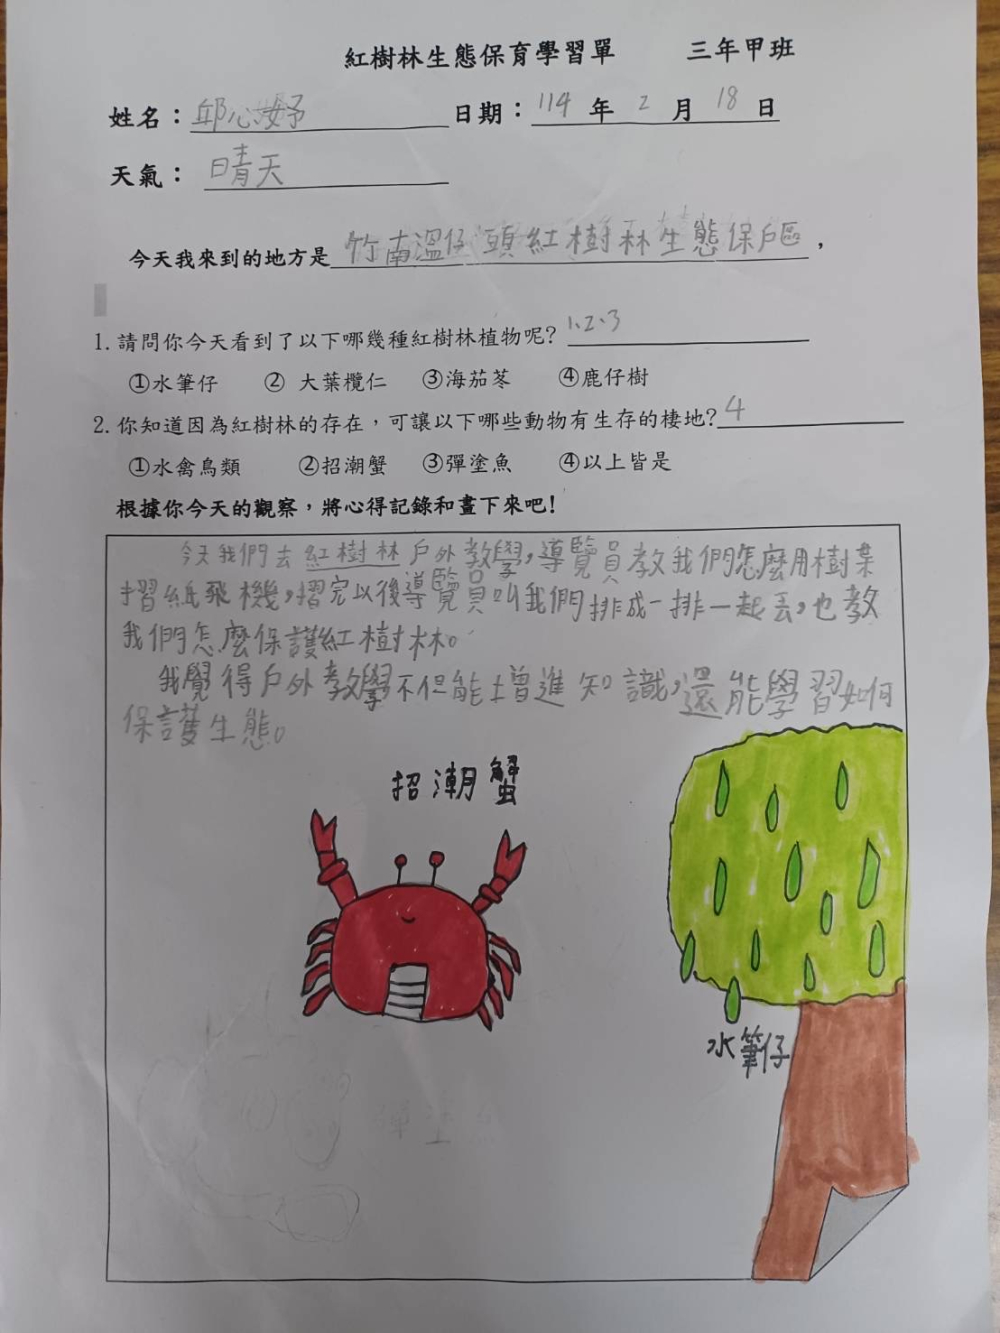 紅樹林生態保育學習單 三年甲班
姓名：邱心妤 日期：114 年 2 月 18 日
天氣：晴天
今天我來到的地方是竹南溫仔頭紅樹林生態保戶區，
1. 請問你今天看到了以下哪幾種紅樹林植物呢? 1、2、3
①水筆仔 ② 大葉欖仁 ③海茄苳 ④鹿仔樹
2. 你知道因為紅樹林的存在，可讓以下哪些動物有生存的棲地? 4
①水禽鳥類 ②招潮蟹 ③彈塗魚 ④以上皆是
根據你今天的觀察，將心得記錄和畫下來吧!
今天我們去紅樹林戶外教學，導覽員教我們怎麼用樹葉
摺紙飛機，摺完以後導覽員叫我們排成一排一起丟，也教
我們怎麼保護紅樹林。
我覺得戶外教學不但能增進知識，還能學習如何
保護生態。
招潮蟹
水筆仔